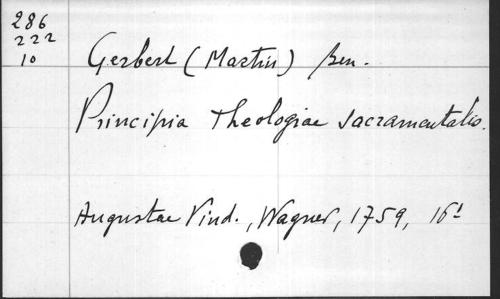 286
222
10
Gerbert (Martin) Ben.
Principia Theologiae sacramentalis.
Augustae Vind., Wagner, 1759, 16º